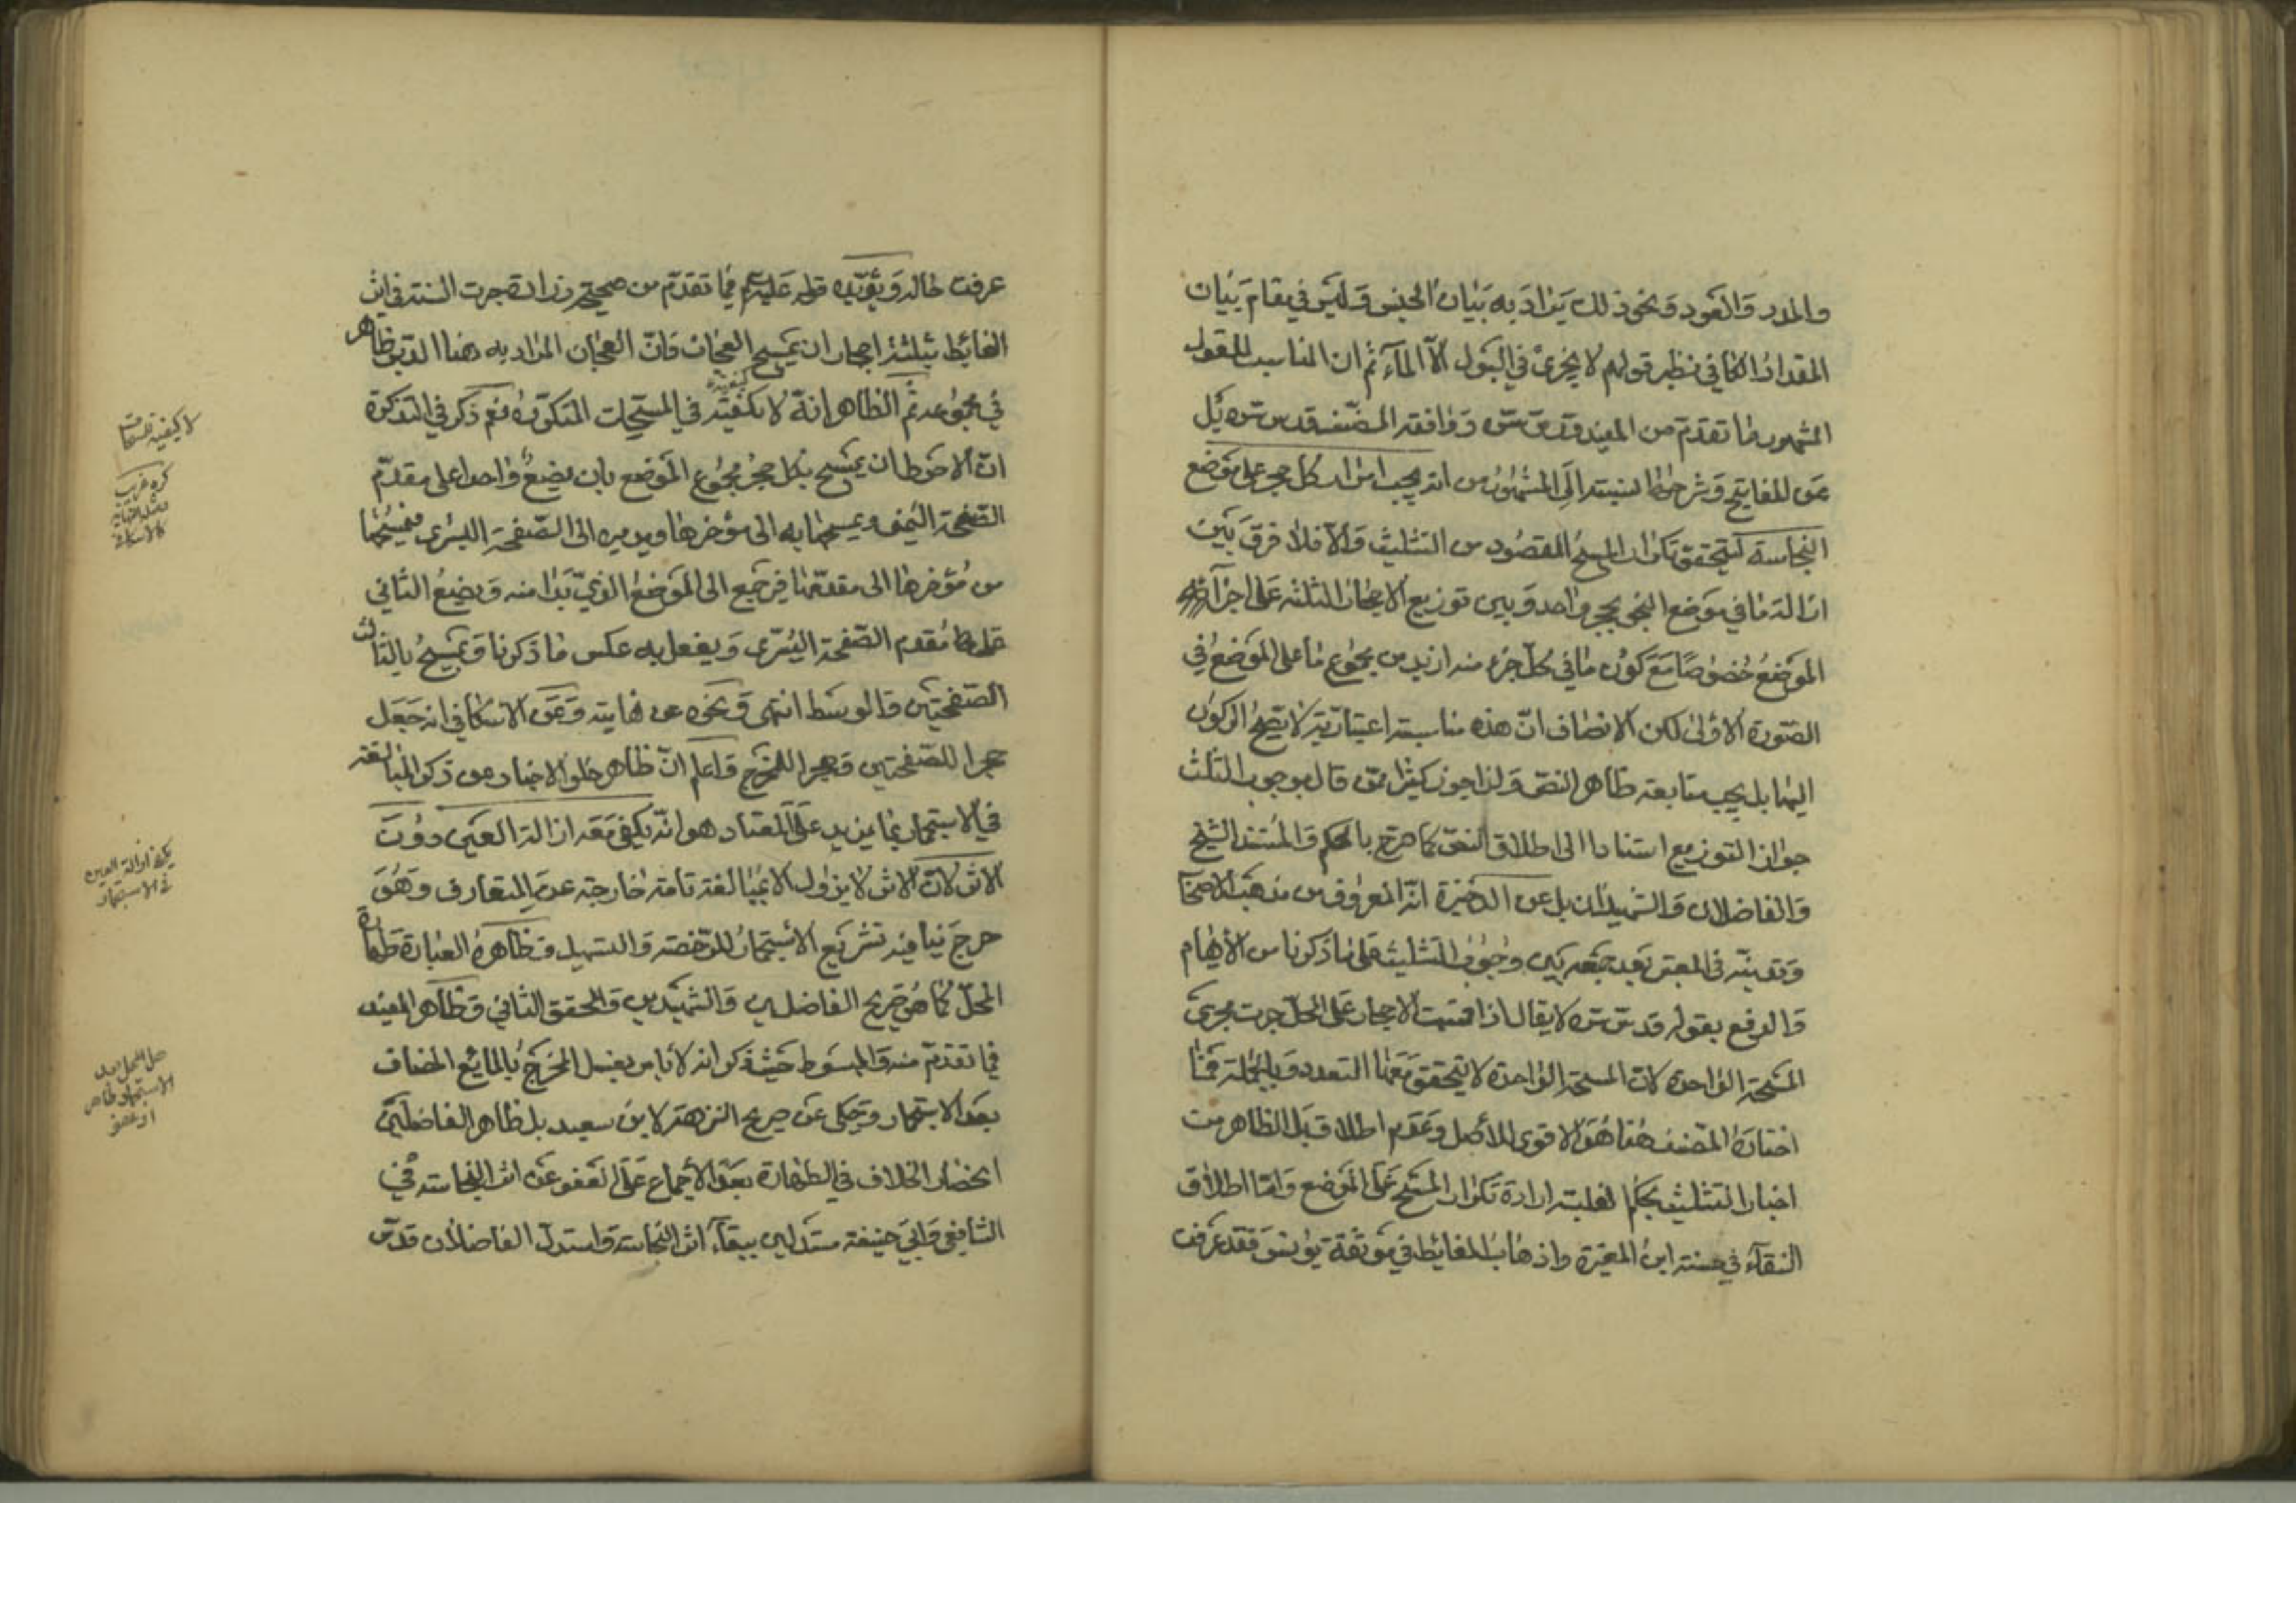 والمدر والعود ونحو ذلك يراد به بيان الجنس وليس في مقام بيان
المقدار الكافي نظير قولهم لا يجزى في البول الا الماء ثم ان المناسب للقول
المشهور ما تقدم من المفيد قدس سره ووافقه المصنف قدس سره بل
عن المفاتيح وشرحها نسبته الى المشهور من انه يجب امرار كل حجر على موضع
النجاسة ليتحقق تكرار المسح المقصود من التثليث والا فلا فرق بين
ازالة ما في موضع النجو بحجر واحد وبين توزيع الاحجار الثلثة على اجزاء
الموضع خصوصا مع كون ما في كل جزء منه ازيد من مجموع ما على الموضع في
الصورة الاولى لكن الانصاف ان هذه مناسبة اعتبارية لا يتجه الركون
اليها بل يجب متابعة ظاهر النص ولذا جوز كثير ممن قال بوجوب الثلث
جواز التوزيع استنادا الى اطلاق النص كما صرح بالحكم والمستند الشيخ
والفاضلان والشهيدان بل عن الذخيرة انه المعروف من مذهب الاصحاب
في المعتبر بعد وجوب التثليث على ما ذكرنا من الايهام
والدفع بقوله قدس سره لا يقال اذا قسمت الاحجار على المحل جرت مجرى
المسحة الواحدة لان المسحة الواحدة لا يتحقق معها التعدد وبالجملة فما
اختاره المصنف هنا هو الاقوى للاصل وعدم اطلاق بل الظاهر من
اخبار التثليث بحكم الغلبة ارادة تكرار المسح على الموضع واما اطلاق
النقاء في حسنة ابن المغيرة واذهاب الغائط في موثقة يونس فقد عرفت
عرفت حاله ويؤيده قوله عليه السلام فيما تقدم من صحيحة زرارة جرت السنة في اثر
الغائط بثلثة احجار ان يمسح العجان فان العجان المراد به هنا الدبر ظاهر
في مجموعه ثم الظاهر انه لا كيفية في المسحات المتكررة نعم ذكر في التذكرة
ان الاحوط ان يمسح بكل حجر مجموع الموضع بان يضع واحدا على مقدم
الصفحة اليمنى ويمسحها به الى مؤخرها ويديره الى الصفحة اليسرى فيمسحها
من مؤخرها الى مقدمها فيرجع الى الموضع الذي بدا منه ويضع الثاني
على مقدم الصفحة اليسرى ويفعل به عكس ما ذكرنا ويمسح بالثالث
الصفحتين والوسط انتهى ونحوه عن نهايته وعن الاسكافي انه جعل
حجرا للصفحتين وحجرا للمخرج واعلم ان ظاهر خلو الاخبار عن ذكر المبالغة
في الاستجمار بما يزيد على المعتاد هو انه يكفي معه ازالة العين دون
الاثر لان الاثر لا يزول الا بمبالغة تامة خارجة عن المتعارف وهو
حرج ينافيه تشريع الاستجمار للرخصة والتسهيل وظاهره العبارة طهارة
المحل كما هو صريح الفاضلين والشهيدين والمحقق الثاني وظاهر المفيد
فيما تقدم منه والمبسوط حيث ذكر انه لا باس بغسل المخرج بالمايع المضاف
بعد الاستجمار وحكى عن صريح النزهة لابن سعيد بل ظاهر الفاضلين
انحصار الخلاف في الطهارة بعد الاجماع على العفو عن اثر النجاسة في
الشافعي وابي حنيفة مستدلين ببقاء اثر النجاسة واستدل الفاضلان قدس
لا كيفية للمسحات
يكفي ازالة العين
في الاستجمار
هل المحل بعد
الاستجمار طاهر
او عفو